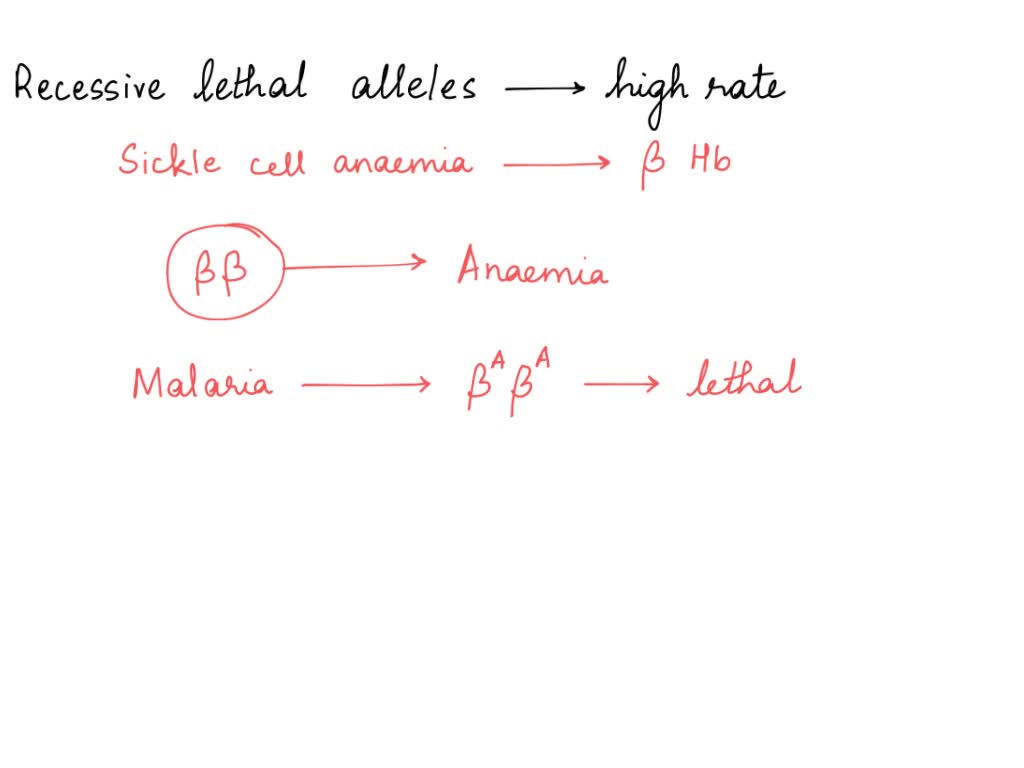 Recessive lethal alleles → high rate
Sickle cell anaemia → β Hb
ββ → Anaemia
Malaria → β^A β^A → lethal